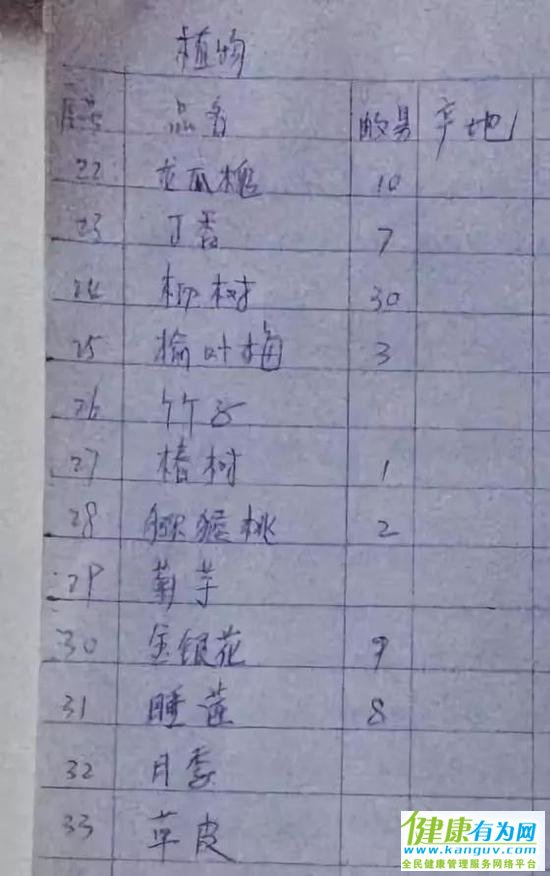 植物
序号 品名 数易 产地
22 龙瓜槐 10
23 丁香 7
24 柳树 30
25 榆叶梅 3
26 竹子
27 椿树 1
28 猕猴桃 2
29 菊芋
30 金银花 9
31 睡莲 8
32 月季
33 草皮
健康有为网
www.kanguv.com
全民健康管理服务网络平台